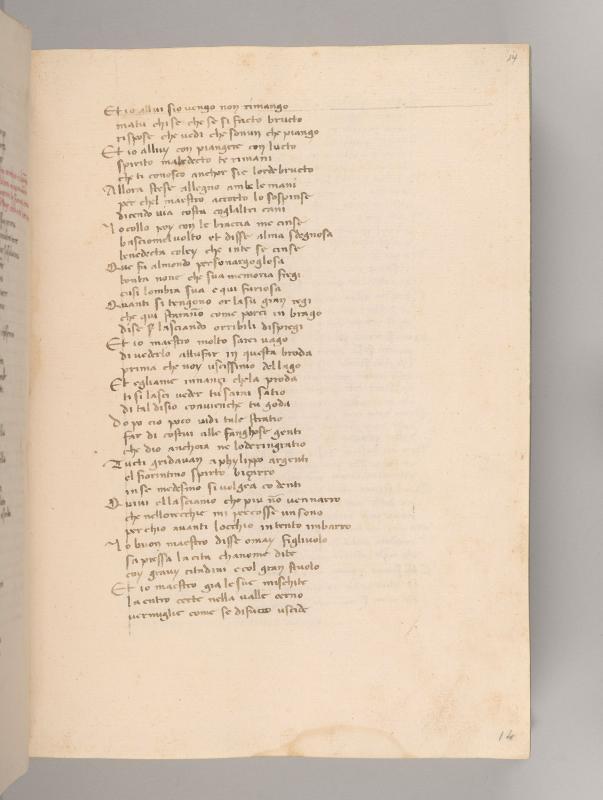 14
Et io allui sio vengo non rimango
matu chi se che se si facto bructo
rispose che vedi che sonun che piango
Et io alluy con piangere con lucto
spirito maledecto te rimani
che ti conosco anchor sie lordebructo
Allora stese allegno ambe le mani
per chel maestro accorto lo sospinse
dicendo via costa coglialtri cani
Lo collo poy con le braccia me cinse
basciomelvolto et disse alma sdegnosa
benedecta coley che inte se cinse
Que fu almondo personargoglosa
bonta none che sua memoria fregi
cusi lombra sua e qui furiosa
Quanti si tengono or lasu gran regi
che qui starano come porci in brago
di se lasciando orribili dispregi
Et io maestro molto sarei vago
di vederlo attufar in questa broda
prima che noy uscissimo del lago
Et egliame innanzi chela proda
ti si lasci veder tu sarai satio
di tal disio convienche tu goda
Dopo cio poco vidi tale stratio
far di costui alle fanghose genti
che dio anchora ne loderingratio
Tucti gridavan aphylippo argenti
el fiorintino spirto bizarro
inse medesmo si volgea co denti
Quivi ellasciamo che piu no vennarro
che nellorecchie mi percosse unsono
perchio avanti locchio intento imbarro
Lo buon maestro disse omay figlivolo
sapressa la cita chanome dite
coy gravy citadini e col gran stuolo
Et io maestro gia le sue mischite
la entro certe nella valle cerno
vermiglie come se di uscite
14